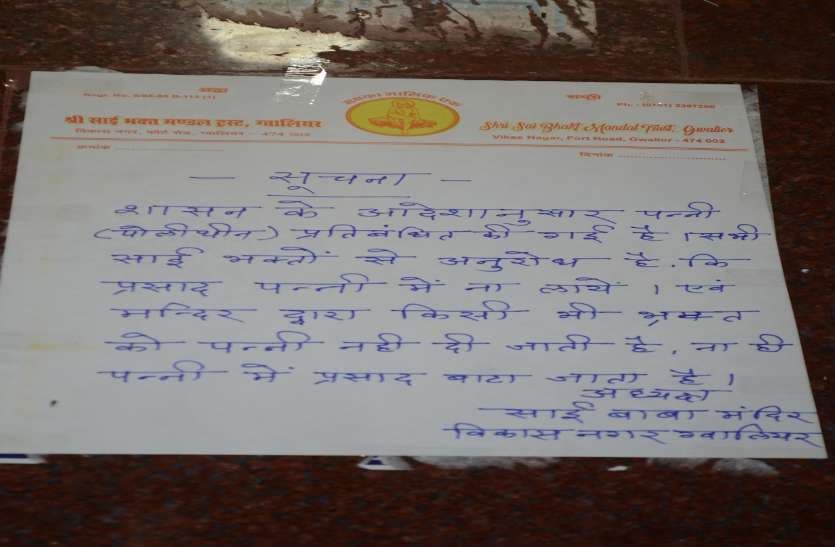 श्रद्धा
सबका मालिक एक
सबूरी
श्री साई भक्त मण्डल ट्रस्ट, ग्वालियर
Shri Sai Bhakt Mandal Trust, Gwalior
विकास नगर, फोर्ट रोड, ग्वालियर - 474 002
Vikas Nagar, Fort Road, Gwalior - 474 002
क्रमांक
दिनांक
- सूचना -
शासन के आदेशानुसार पन्नी
(पोलीथीन) प्रतिबंधित की गई है । सभी
साई भक्तों से अनुरोध है. कि
प्रसाद पन्नी में ना लायें । एवं
मन्दिर द्वारा किसी भी भक्त
को पन्नी नही दी जाती है, ना ही
पन्नी में प्रसाद बाटा जाता है ।
अध्यक्ष
साई बाबा मंदिर
विकास नगर ग्वालियर